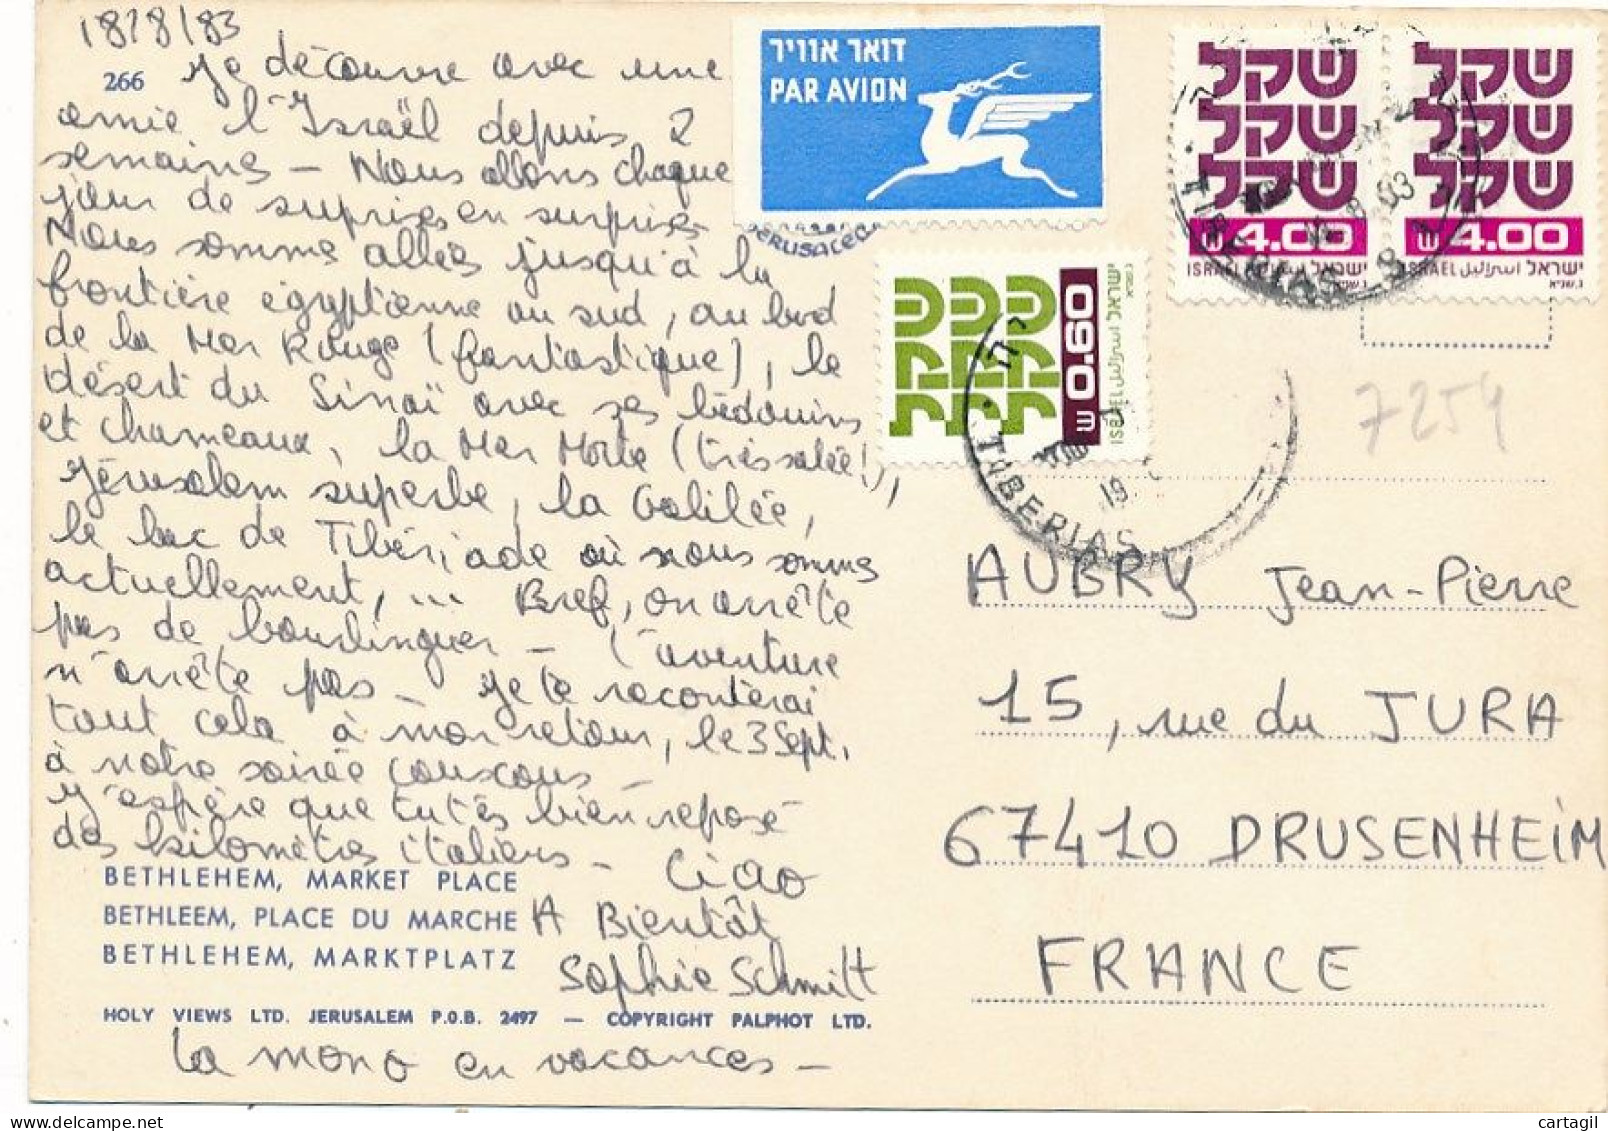 18/8/83
266
Je découvre avec une
amie l'Israël depuis 2
semaines - Nous allons chaque
jour de suprises en surprises
Nous somme allées jusqu'à la
frontière égyptienne au sud, au bord
de la Mer Rouge (fantastique), le
désert du Sinaï avec ses bédouins
et chameaux, la Mer Morte (très salée!),
Jérusalem superbe, la Galilée,
le lac de Tibériade où nous sommes
actuellement, ... Bref, on arrête
pas de bourlinguer - l'aventure
n'arrête pas - Je te raconterai
tout cela à mon retour, le 3 Sept.
à notre soirée couscous -
J'espère que tu t'es bien reposé
des kilomètres italiens - Ciao
A Bientôt
Sophie Schmitt
La mono en vacances -
BETHLEHEM, MARKET PLACE
BETHLEEM, PLACE DU MARCHE
BETHLEHEM, MARKTPLATZ
HOLY VIEWS LTD. JERUSALEM P.O.B. 2497 — COPYRIGHT PALPHOT LTD.
דואר אוויר
PAR AVION
JERUSALEM
שקל שקל
שקל שקל
שקל שקל
4.00 4.00
ISRAEL اسرائيل ישראל
ISRAEL اسرائيل ישראל
TIBERIAS
0.60
ISRAEL اسرائيل ישראל
TIBERIAS
7254
AUBRY Jean-Pierre
15, rue du JURA
67410 DRUSENHEIM
FRANCE
cartagil